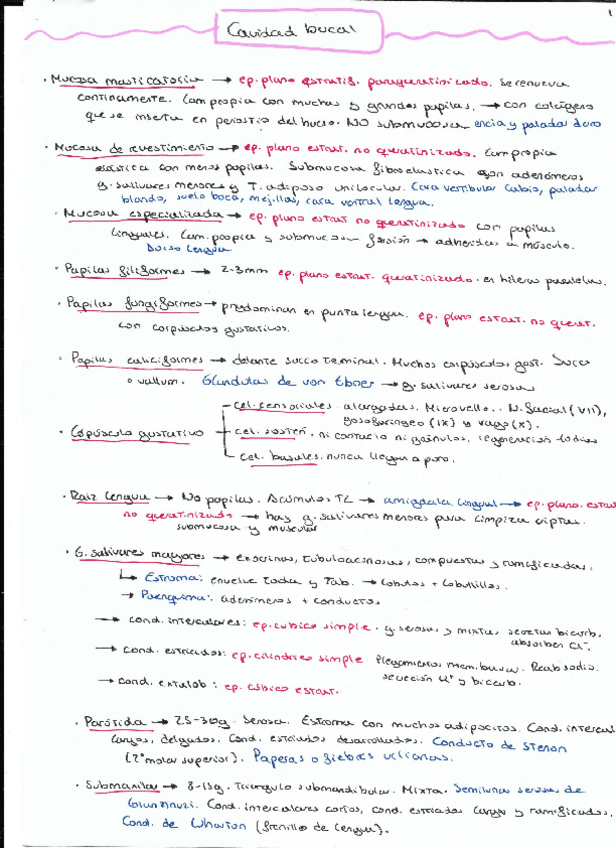 Cavidad bucal
· Mucosa masticatoria → ep. plano estratif. paraqueratinizado. Se renueva
continuamente. Lam propia con muchas y grandes papilas, → con colágeno
que se inserta en periostio del hueso. NO submucosa encía y paladar duro
· Mucosa de revestimiento → ep. plano estrat. no queratinizado. Lam propia
elástica con menos papilas. Submucosa fibroelástica con adenómeros
g. salivares menores y T. adiposo unilocular. Cara vestibular labio, paladar
blando, suelo boca, mejillas, cara ventral lengua.
· Mucosa especializada → ep. plano estrat no queratinizado con papilas
linguales. Lam. propia y submucosa fusión → adheridas a músculo.
Dorso lengua
· Papilas filiformes → 2-3mm ep. plano estrat. queratinizado. en hileras paralelas.
· Papilas fungiformes → predominan en punta lengua. ep. plano estrat. no querat.
con corpúsculos gustativos.
· Papilas caliciformes → delante surco terminal. Muchos corpúsculos gust. Surco
o vallum. Glándulas de von Ebner → g. salivares serosas
· Corpúsculo gustativo
cel. sensoriales. alargadas. Microvello.. N. facial (VII),
glosofaríngeo (IX) y vago (X).
cel. sostén. ni contacto ni gránulos. regeneración 10 días
cel. basales. nunca llegan a poro.
· Raiz lengua → No papilas. Acúmulos TL → amígdala lingual → ep. plano. estrat
no queratinizado → hay g. salivares menores para limpiza criptas.
submucosa y muscular
· G. salivares mayores → exocrinas, tubuloacinosas, compuestas y ramificadas.
↳ Estroma: envuelve toda y tab. → lóbulos + lobulillos.
→ Parénquima: adenómeros + conductos
→ cond. intercalares: ep. cúbico simple. g serosas y mixtas, secretan bicarb,
absorben Cl⁻.
→ cond. estriados: ep. cilíndrico simple Plegamientos mem. basal. Reab sodio.
secreción K⁺ y bicarb.
→ cond. extralob: ep. cúbico estrat.
· Parótida → 25-30g. Serosa. Estroma con muchos adipocitos. Cond. intercal
largos, delgados. Cond. estriados desarrollados. Conducto de Stenon
(2º molar superior). Paperas o fiebres urlianas.
· Submaxilar → 8-15g. Triángulo submandibular. Mixta. Semilunas serosas de
Gianuzzi. Cond. intercalares cortos, cond. estriados largos y ramificados.
Cond. de Wharton (frenillo de lengua).